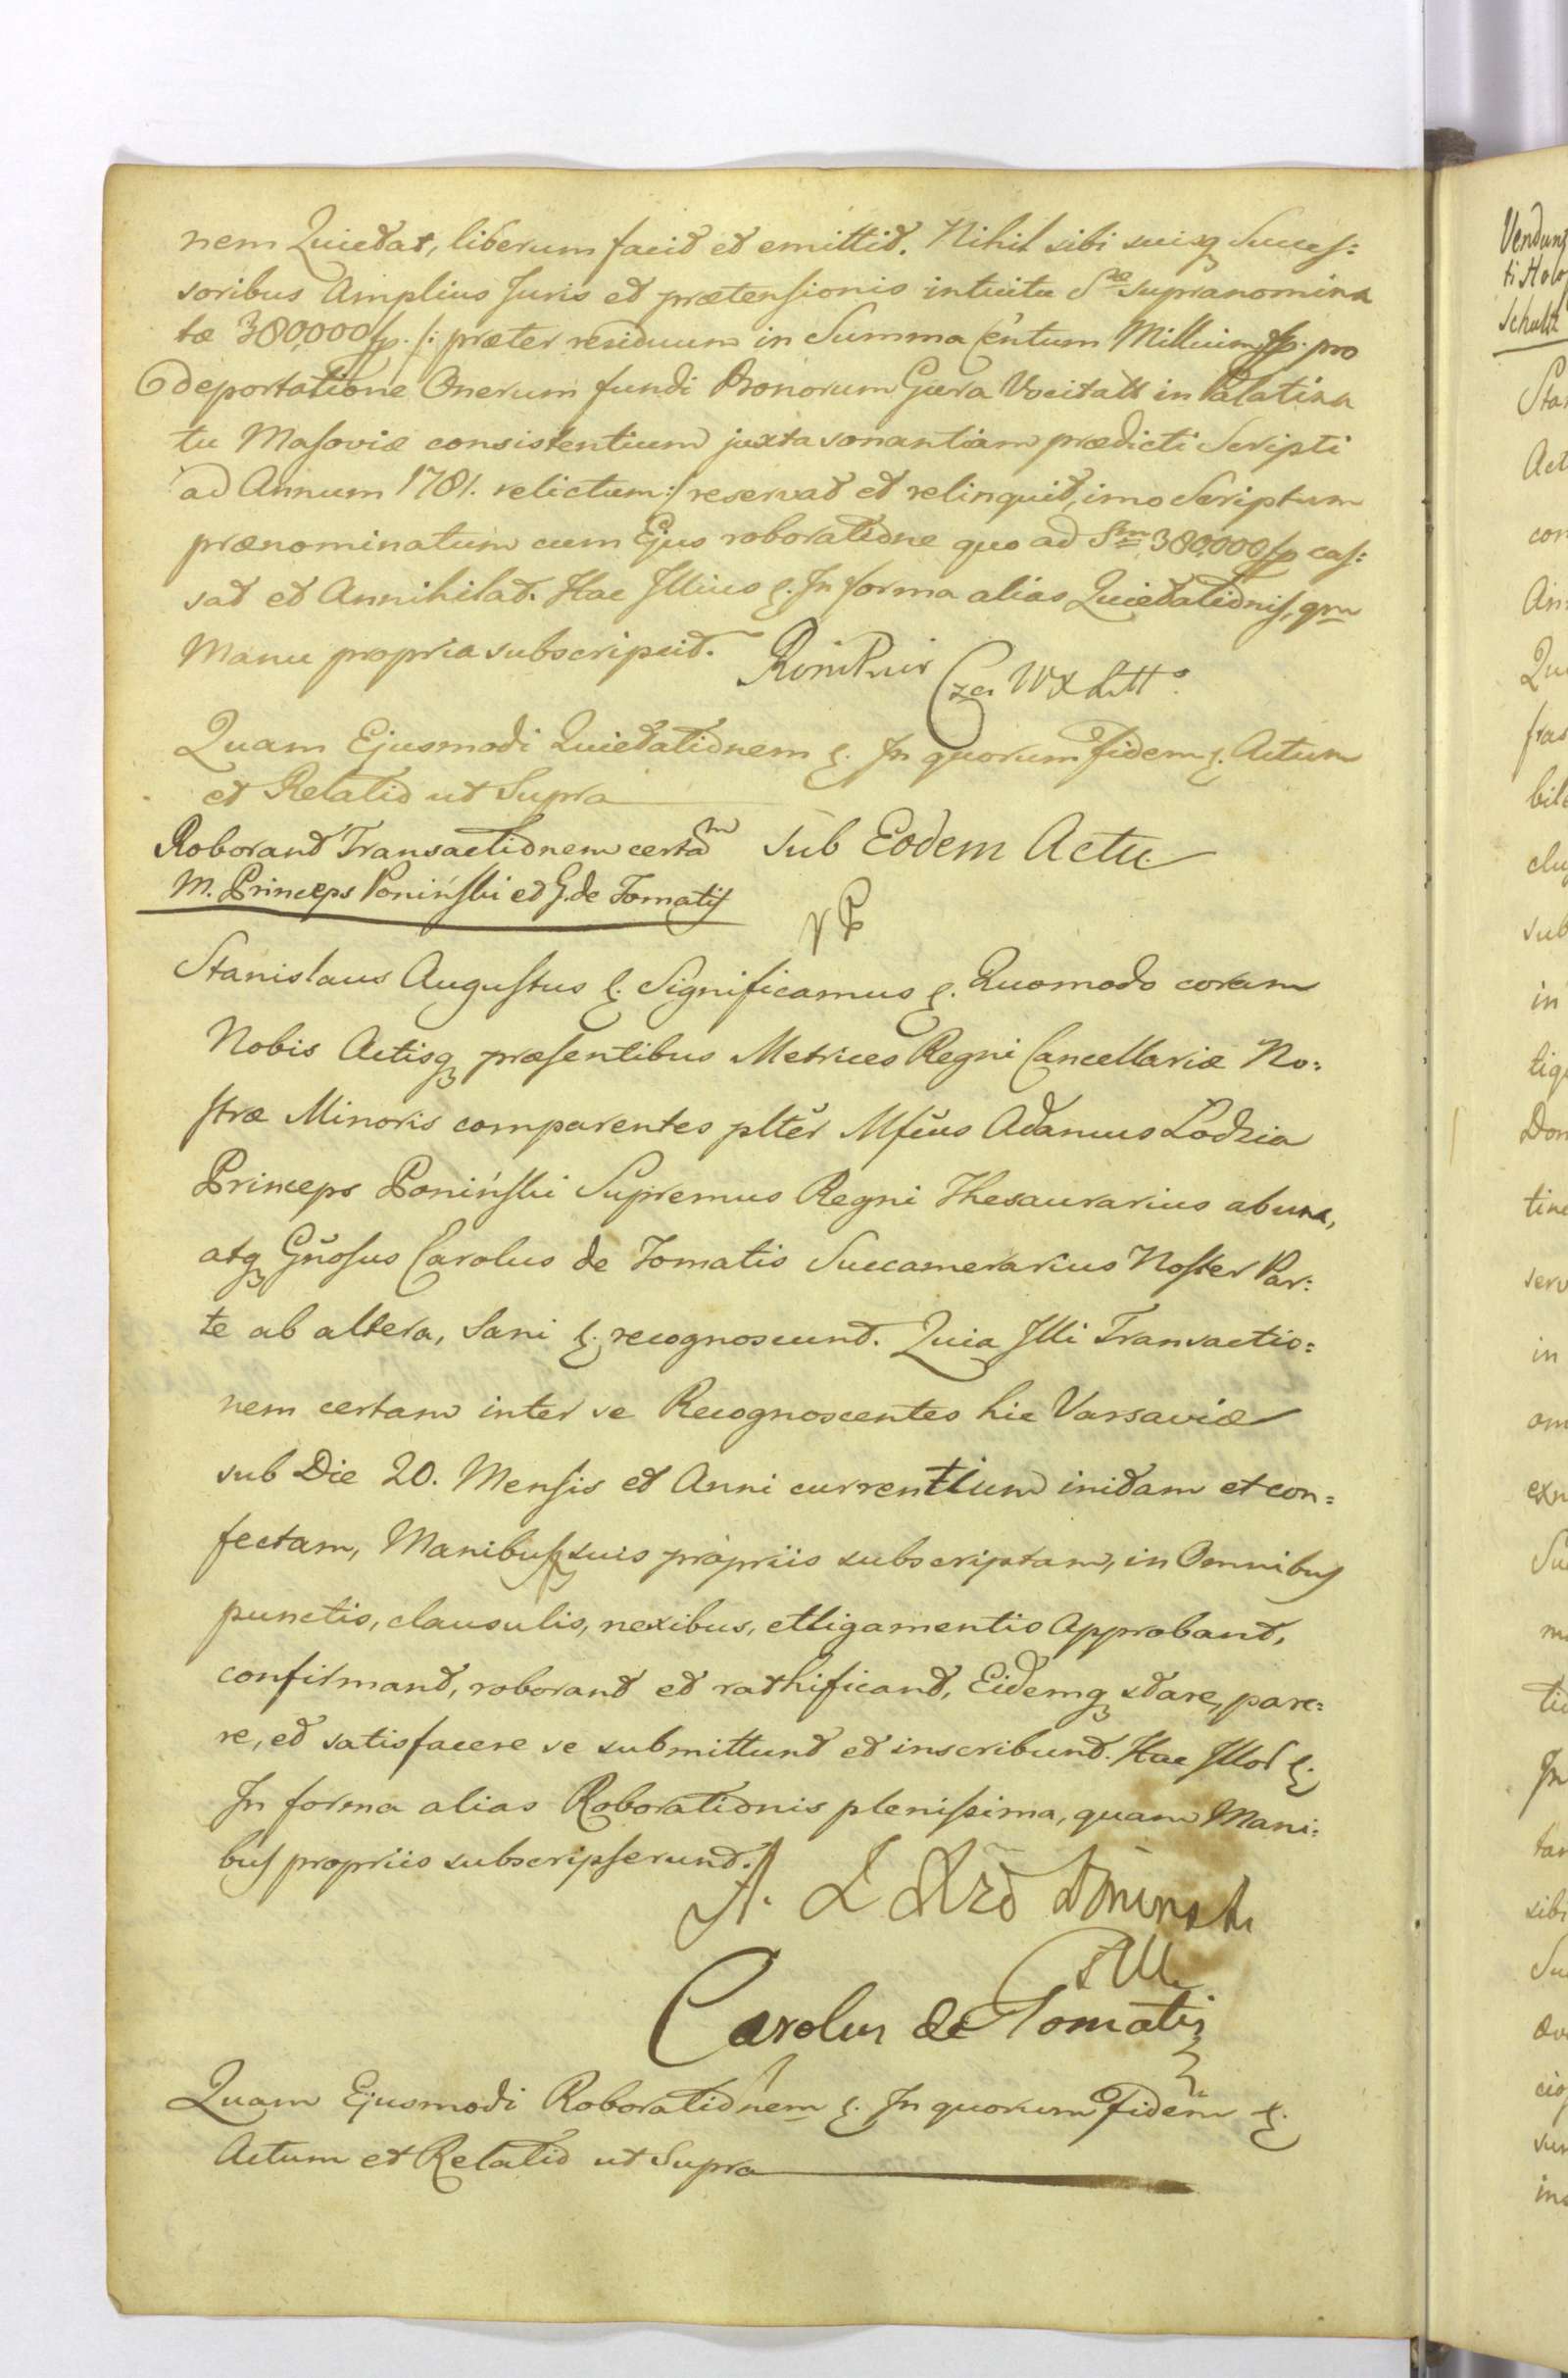 nem Quietat, liberum facit et emittit. Nihil sibi suisq Succes:
soribus Amplius Juris et prætensionis intuitu Sæ supranomina
tæ 380,000 fp. /: præter residuum in Summa Centum Millium fp. pro
deportatione Onerum fundi Bonorum Gura Vocitatt in Palatina
tu Masoviæ consistentium juxta sonantiam prædicti Scripti
ad Annum 1781. relictum :/ reservat et relinquit, imo Scriptum
prænominatum cum Ejus roboratione quo ad Sm̅ 380,000 fp cas:
sat et Annihilat. Hac Illius &. In forma alias Quietationis, qm
Manu propria subscripsit.
Quam Ejusmodi Quietationem &. In quorum fidem &. Actum
et Relatio ut Supra
Roborant Transactionem certam
M. Princeps Poniński et G. de Tomatis
Sub Eodem Actu
Stanislaus Augustus &. Significamus &. Quomodo coram
Nobis Actisq præsentibus Metrices Regni Cancellariæ No:
stræ Minoris comparentes plter Mfcus Adamus Lodzia
Princeps Poniński Supremus Regni Thesaurarius ab una,
atq Gnosus Carolus de Tomatis Succamerarius Noster Par:
te ab altera, Sani &. recognoscunt. Quia Illi Transactio:
nem certam inter se Recognoscentes hic Varsaviæ
sub Die 20. Mensis et Anni currentium initam et con:
fectam, Manibusq suis propriis subscriptam, in Omnibus
punctis, clausulis, nexibus, et ligamentis Approbant,
confirmant, roborant et rathificant, Eidemq stare, pare:
re, et satisfacere se submittunt et inscribunt. Hac Illor &.
In forma alias Roborationis plenissima, quam Mani:
bus propriis subscripserunt.
Carolus de Tomatis
Quam Ejusmodi Roborationem &. In quorum Fidem &.
Actum et Relatio ut Supra